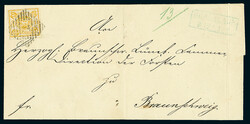 13
An
Herzogl. Braunschw. Lüneb. Cammer
Direction der Forsten
zu
fr Braunschweig